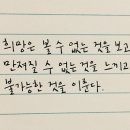 희망은 볼 수 없는 것을 보고
만져질 수 없는 것을 느끼고
불가능한 것을 이룬다.